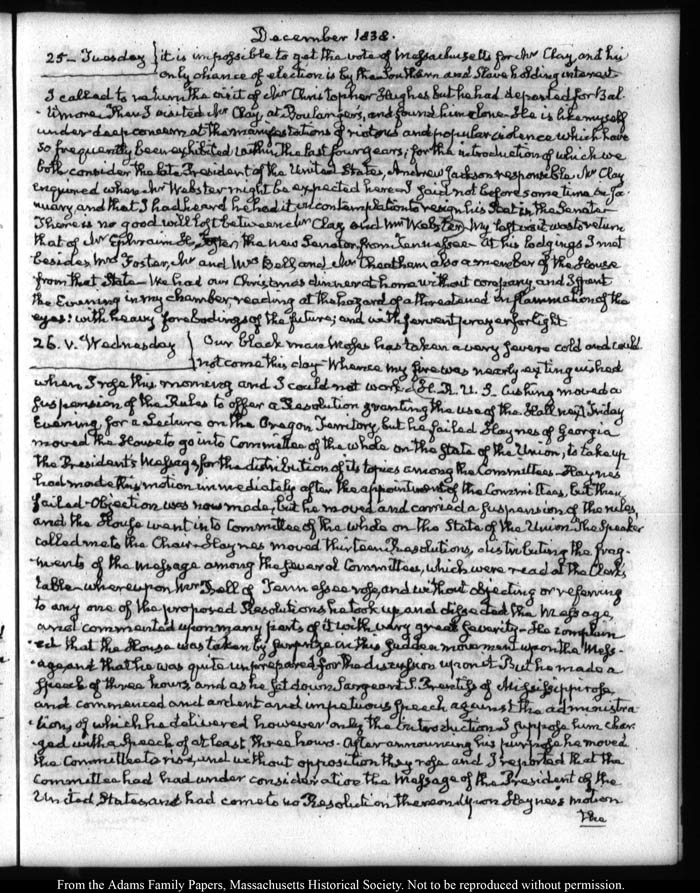 December 1838.
25 - Tuesday } it is impossible to get the vote of Massachusetts for Mr Clay, and his
only chance of election is by the Southern and Slave holding interest
I called to return the visit of Mr Christopher Hughes but he had departed for Bal-
timore. Then I visited Mr Clay, at Boulangers, and found him alone. He is like myself
under deep concern at the manifestations of riotous and popular violence which have
so frequently been exhibited within the last four years; for the introduction of which we
both consider the late President of the United States, Andrew Jackson responsible. Mr Clay
enquired when Mr Webster might be expected here. I said not before some time in Ja-
nuary and that I had heard he had it in contemplation to resign his Seat in the Senate
There is no good will lost between Mr Clay and Mr Webster. My last visit was to return
that of Mr Ephraim H. Foster, the new Senator from Tennessee. At his lodgings I met
besides Mrs Foster, Mr and Mrs Bell and Mr Cheatham also a member of the House
from that State. We had our Christmas dinner at home without company, and I spent
the Evening in my chamber reading at the hazard of a threatened inflammation of the
eyes: with heavy forebodings of the future; and with fervent prayer for light
26. V. Wednesday } Our black man Moses has taken a very severe cold and could
not come this day - Whence my fire was nearly extinguished
when I rose this morning and I could not work. H. R. U. S. Cushing moved a
suspension of the Rules to offer a Resolution granting the use of the Hall next Friday
Evening, for a Lecture on the Oregon Territory, but he failed. Haynes of Georgia
moved the House to go into Committee of the whole on the State of the Union, to take up
the President's Message for the distribution of its topics among the Committees - Haynes
had made this motion immediately after the appointment of the Committees, but then
failed - Objection was now made, but he moved and carried a suspension of the rules,
and the House went into Committee of the whole on the State of the Union. The Speaker
called me to the Chair. Haynes moved thirteen Resolutions, distributing the frag-
-ments of the Message among the several Committees, which were read at the Clerk's
table - whereupon Mr Bell of Tennessee rose, and without objecting or referring
to any one of the proposed Resolutions he took up, and dissected the Message,
and commented upon many parts of it with very great severity - He complain
-ed that the House was taken by surprize in this sudden movement upon the Mess-
-age, and that he was quite unprepared for the discussion upon it. But he made a
speech of three hours, and as he sat down Sargeant S. Prentiss of Mississippi rose,
and commenced and ardent and impetuous speech against the administra
-tion, of which he delivered however only the introduction. I suppose him char-
ged with a speech of at least three hours. After announcing his purpose he moved
the Committee to rise, and without opposition they rose and I reported that the
Committee had had under consideration the Message of the President of the
United States, and had come to no Resolution thereon. Upon Haynes's motion
the
From the Adams Family Papers, Massachusetts Historical Society. Not to be reproduced without permission.